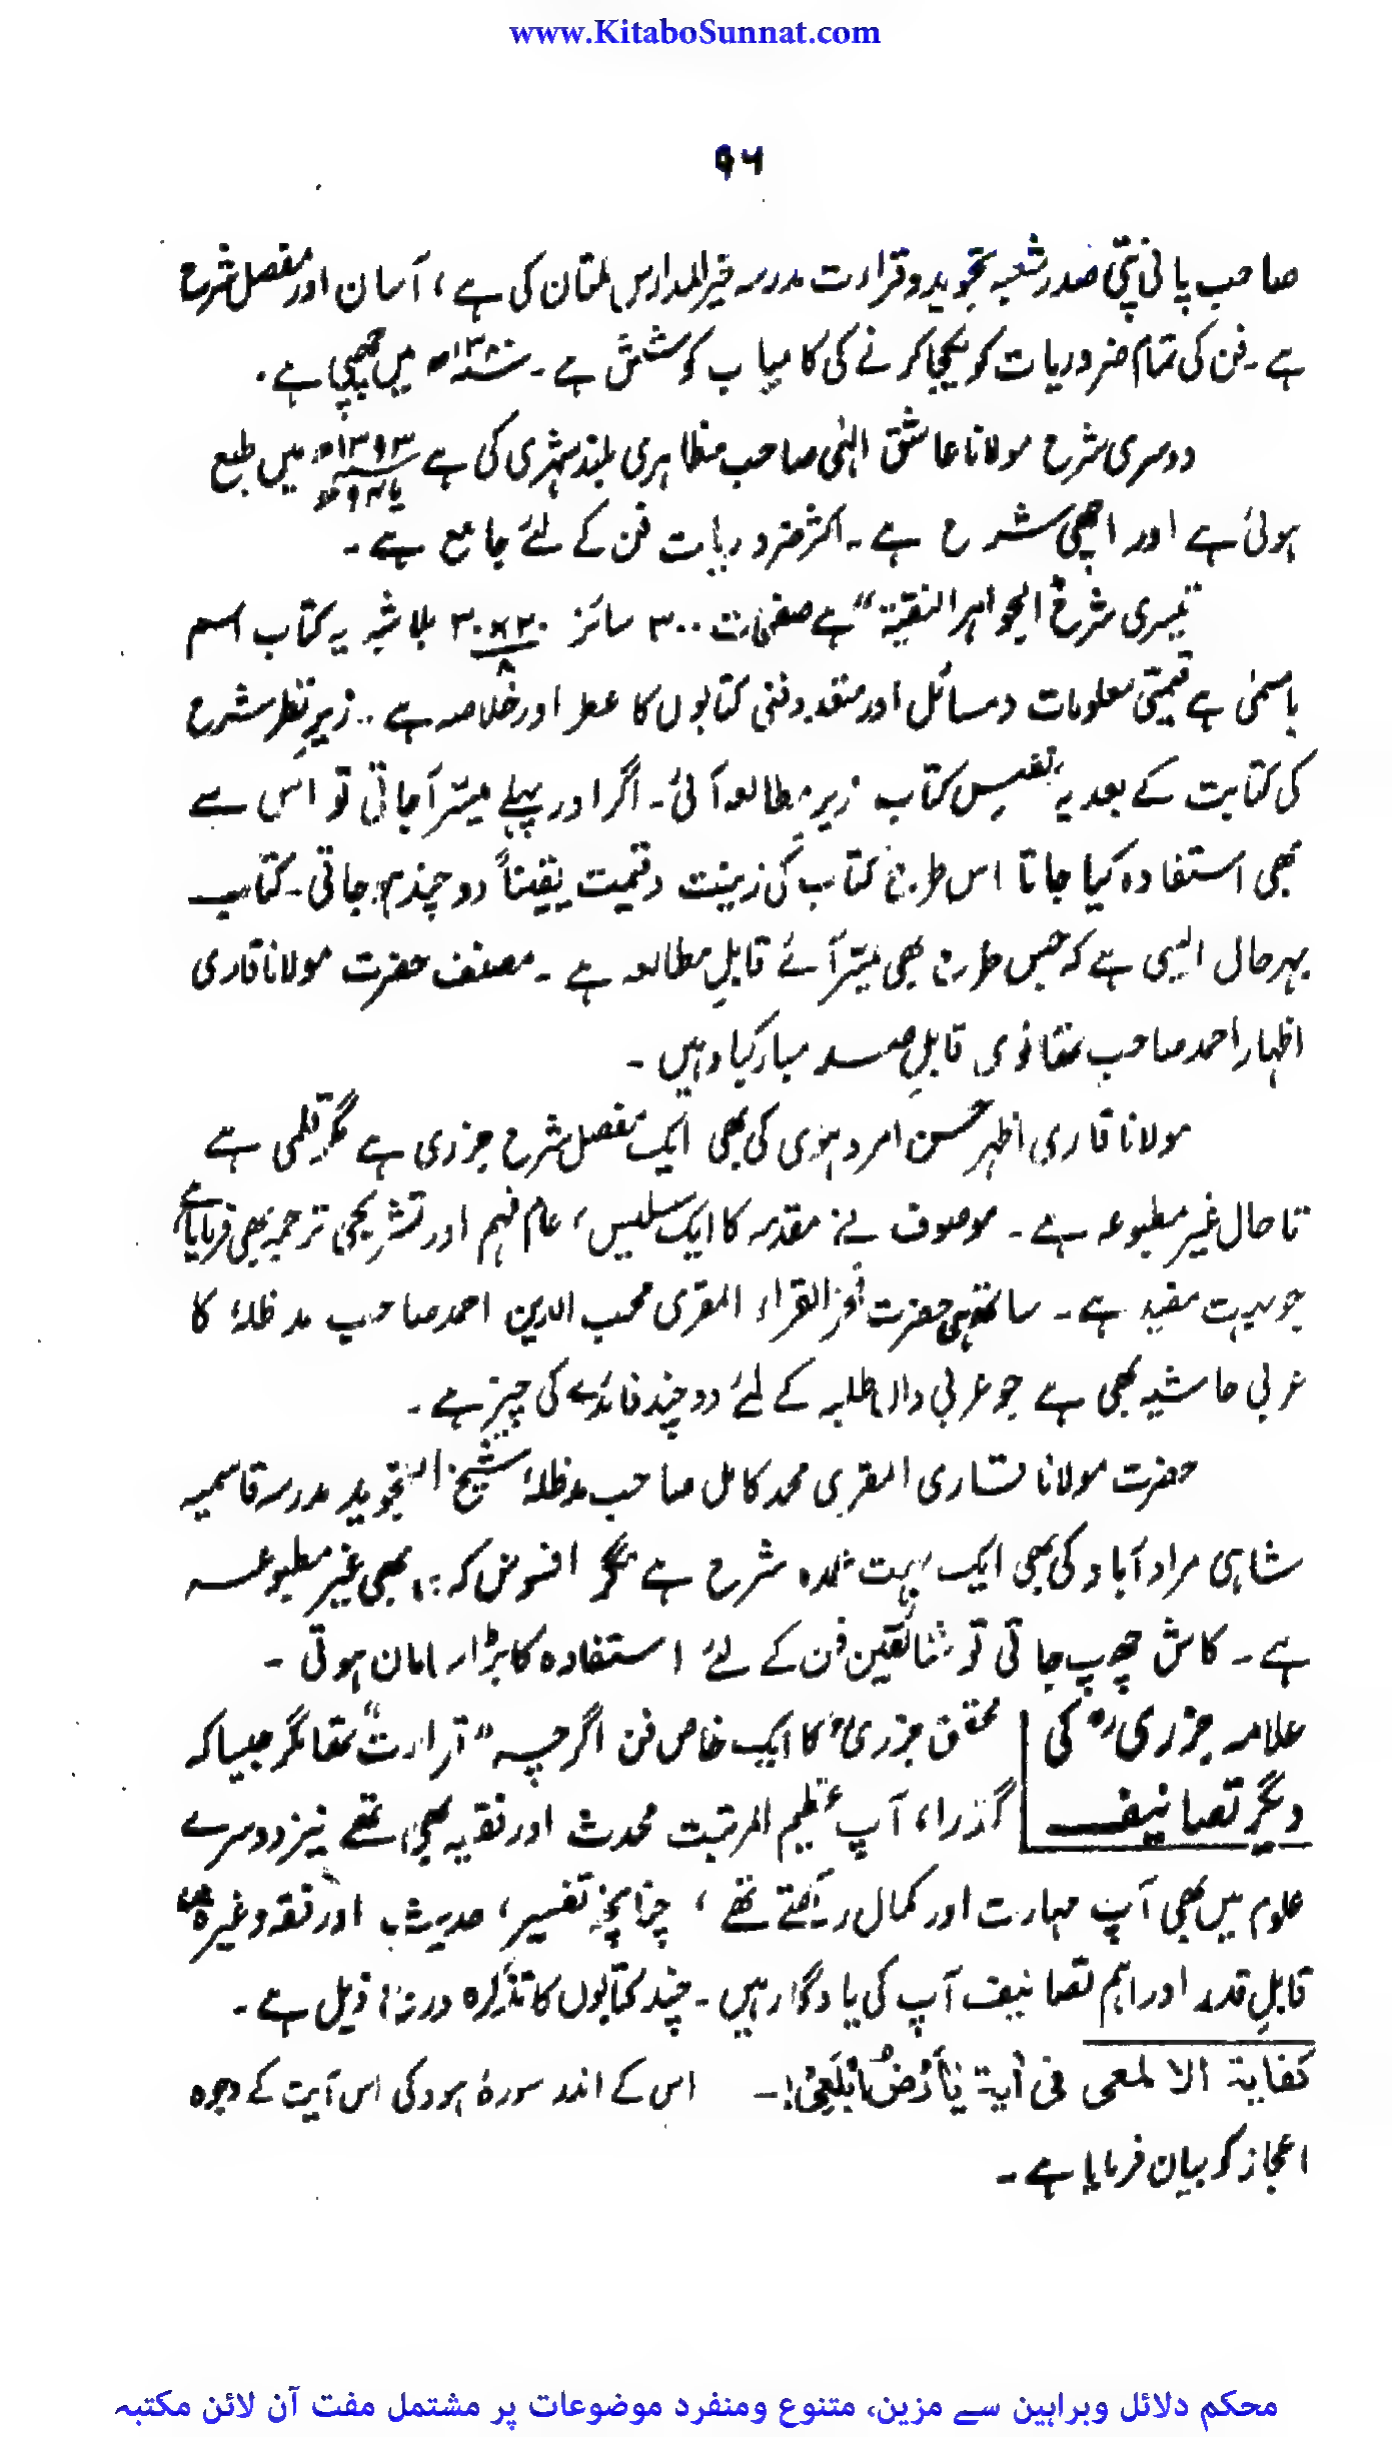 www.KitaboSunnat.com
۹۶
صاحب پانی پتی صدر شعبہ تجوید و قراءت مدرسہ خیرالمدارس ملتان کی ہے، آسان اور مفصل شرح
ہے۔ فن کی تمام ضروریات کو یکجا کرنے کی کامیاب کوشش ہے۔ میں چھپی ہے۔
دوسری شرح مولانا عاشق الٰہی صاحب مظاہری بلند شہری کی ہے ۱۳۹۳ھ میں طبع
ہوئی ہے اور اچھی شرح ہے۔ اکثر ضروریات فن کے لئے جامع ہے۔
تیسری شرح الجواہر النقیۃ" ہے صفحات ۳۰۰ سائز ۲۰×۳۰/۸ بلاشبہ یہ کتاب اسم
بامسمٰی ہے قیمتی معلومات و مسائل اور متعدد فنی کتابوں کا عطر اور خلاصہ ہے۔۔ زیرِ نظر شرح
کی کتابت کے بعد یہ نفیس کتاب زیرِ مطالعہ آئی۔ اگر اور پہلے میسّر آجاتی تو اس سے
بھی استفادہ کیا جاتا اس طرح کتاب کی زینت و قیمت یقیناً دوچند ہوجاتی۔ کتاب
بہرحال ایسی ہے کہ جس طرح بھی میسّر آئے قابلِ مطالعہ ہے۔ مصنف حضرت مولانا قاری
اظہار احمد صاحب تھانوی قابلِ صد مبارکباد ہیں۔
مولانا قاری اظہر حسن امروہوی کی بھی ایک مفصل شرح جزری ہے مگر قلمی ہے
تاحال غیر مطبوعہ ہے۔ موصوف نے مقدمہ کا ایک سلیس، عام فہم اور تشریحی ترجمہ بھی فرمایا ہے
جو بہت مفید ہے۔ ساتھ ہی حضرت فخر القراء المقری محب الدین احمد صاحب مدظلہٗ کا
عربی حاشیہ بھی ہے جو عربی داں طلبہ کے لئے دوچند فائدے کی چیز ہے۔
حضرت مولانا قاری المقری محمد کامل صاحب مدظلہٗ شیخ التجوید مدرسہ قاسمیہ
شاہی مراد آباد کی بھی ایک بہت عمدہ شرح ہے مگر افسوس کہ یہ بھی غیر مطبوعہ
ہے۔ کاش چھپ جاتی تو شائقین فن کے لئے استفادہ کا بڑا سامان ہوتی۔
علامہ جزریؒ کی
دیگر تصانیف
محقق جزریؒ کا ایک خاص فن اگرچہ "قراءت" تھا مگر جیسا کہ
گذرا، آپ عظیم المرتبت محدث اور فقیہ بھی تھے نیز دوسرے
علوم میں بھی آپ مہارت اور کمال رکھتے تھے، چنانچہ تفسیر، حدیث اور فقہ وغیرہ میں
قابلِ قدر اور اہم تصانیف آپ کی یادگار ہیں۔ چند کتابوں کا تذکرہ درج ذیل ہے۔
کفایۃ الالمعی فی اٰیۃ یٰاَرْضُ ابْلَعِیْ:۔ اس کے اندر سورۂ ہود کی اس آیت کے وجوہ
اعجاز کو بیان فرمایا ہے۔
محکم دلائل وبراہین سے مزین، متنوع ومنفرد موضوعات پر مشتمل مفت آن لائن مکتبہ